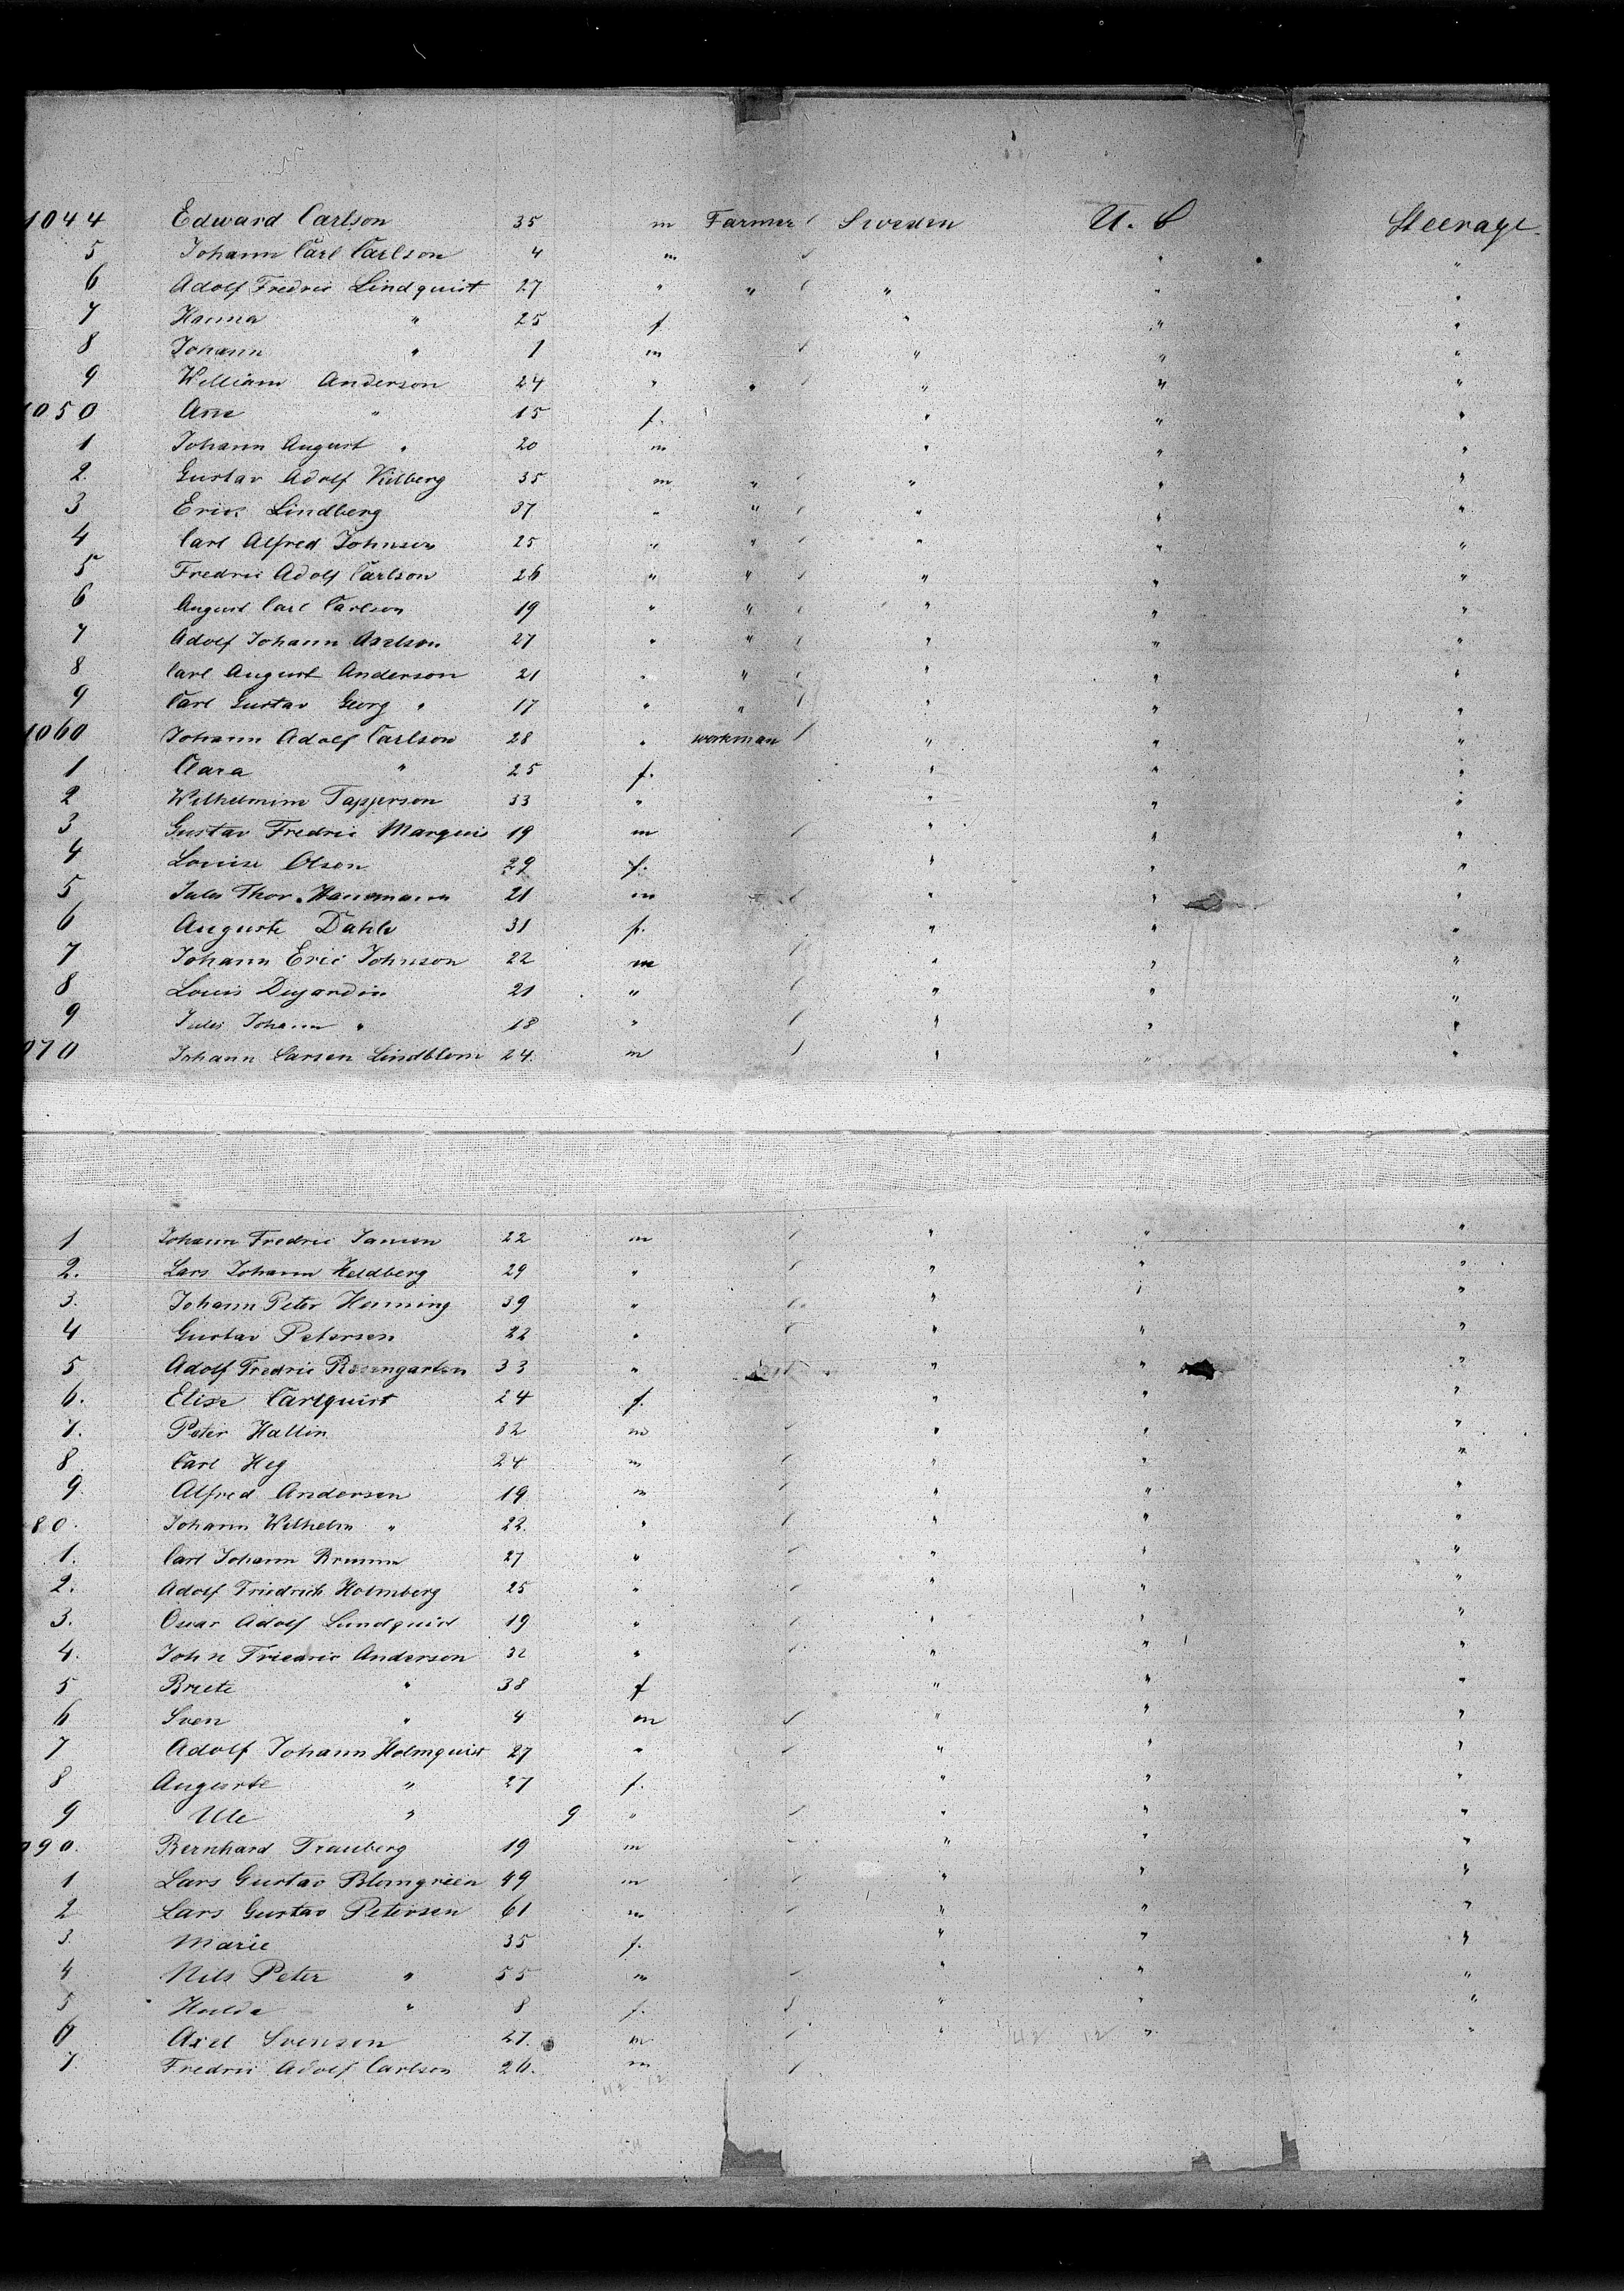 1044 Edward Carlson 35 m Farmer Sweden U. S Steerage.
5 Johann Carl Carlson 4 m " "
6 Adolf Fredric Lindquist 27 " " " " "
7 Hanna " 25 f " " "
8 Johann " 1 m " " "
9 William Anderson 24 " " " " "
1050 Ane " 15 f. " " "
1 Johann August " 20 m " " "
2. Gustav Adolf Kilberg 35 m " " " "
3 Erics Lindberg 37 " " " " "
4 Carl Alfred Johnson 25 " " " " "
5 Fredric Adolf Carlson 26 " " " " "
6 August Carl Carlson 19 " " " " "
7 Adolf Johann Axelson 27 " " " " "
8 Carl August Anderson 21 " " " " "
9 Carl Gustav Georg " 17 " " " " "
1060 Johann Adolf Carlson 28 " workman " " "
1 Clara " 25 f. " " "
2 Wilhelmine Tapperson 33 " " " "
3 Gustav Fredric Marquis 19 m " " "
4 Louise Olson 29 f. " " "
5 Jules Thor. 21 m " " "
6 Auguste Dahle 31 f. " " "
7 Johann Eric Johnson 22 m " " "
8 Louis Dujardin 21 " " " "
9 Jules Johann " 18 " " " "
070 Johann Larsen Lindblom 24. m " " "
1 Johann Fredric Jansen 22 m " " "
2. Lars Johann Heldberg 29 " " " "
3. Johann Peter Henning 39 " " " "
4 Gustav Petersen 22 " " " "
5 Adolf Fredric Rosengarten 33 " " " "
6. Elise Carlquist 24 f. " " "
7. Peter Hallin 32 m " " "
8 Carl Heg 24 m " " "
9. Alfred Andersen 19 m " " "
80. Johann Wilhelm " 22. " " " "
1. Carl Johann Brumm 27 " " " "
2. Adolf Friedrich Holmberg 25 " " " "
3. Oscar Adolf Lundquist 19 " " " "
4. John Friedric Anderson 32 " " " "
5 Brite " 38 f " " "
6 Sven " 4 m " " "
7 Adolf Johann Holmquist 27 " " " "
8 Auguste " 27 f. " " "
9 Ule " 9 " " " "
090. Bernhard Trauberg 19 m " " "
1 Lars Gustav Blomgreen 49 m " " "
2 Lars Gustav Petersen 61 m " " "
3. Marie 35 f. " " "
4 Nils Peter " 55 m " " "
5 Hulda " 8 f. " " "
6 Axel Svenson 27. m " " "
7 Fredric Adolf Carlson 26. m